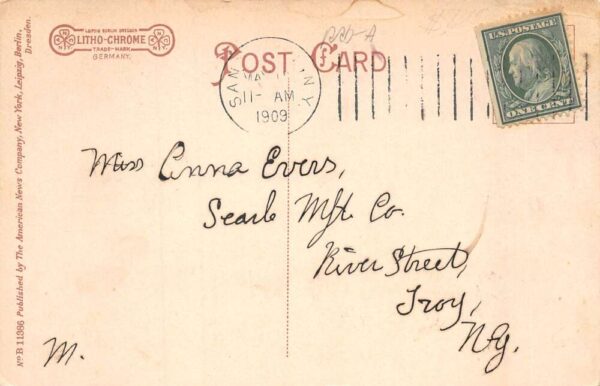 LEIPZIG BERLIN DRESDEN
LITHO-CHROME
TRADE-MARK
GERMANY.
POST CARD
SAN
NY
11- AM
1909
U.S. POSTAGE
ONE CENT
Miss Anna Evers,
Searle Mft. Co.
River Street,
Troy,
N.Y.
M.
No B 11386 Published by The American News Company, New York, Leipzig, Berlin,
Dresden.